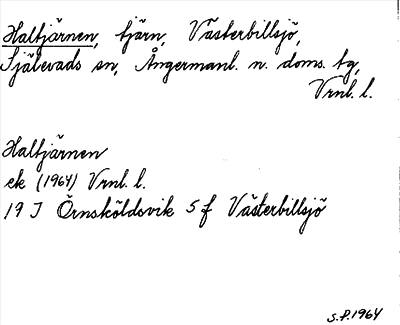 Haltjärnen, tjärn, Västerbillsjö,
Själevads sn, Ångermanl. n. doms. tg,
Vrnl. l.
Haltjärnen
ek (1964) Vrnl. l.
19 J Örnsköldsvik 5 f Västerbillsjö
S.P. 1964